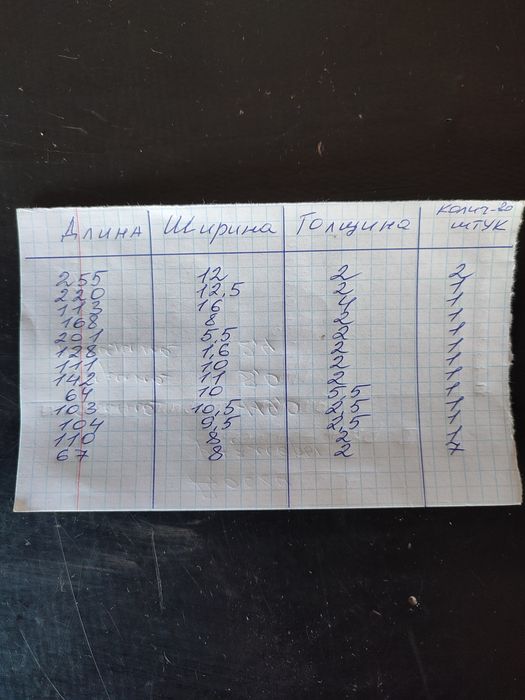 Длина Ширина Толщина Колич-во штук
255 12 2 2
220 12,5 2 1
113 16 4 1
168 8 2 1
201 5,5 2 1
128 1,6 2 1
111 10 2 1
142 11 2 1
64 10 5,5 1
103 10,5 2,5 1
104 9,5 2,5 1
110 8 2 1
67 8 2 7